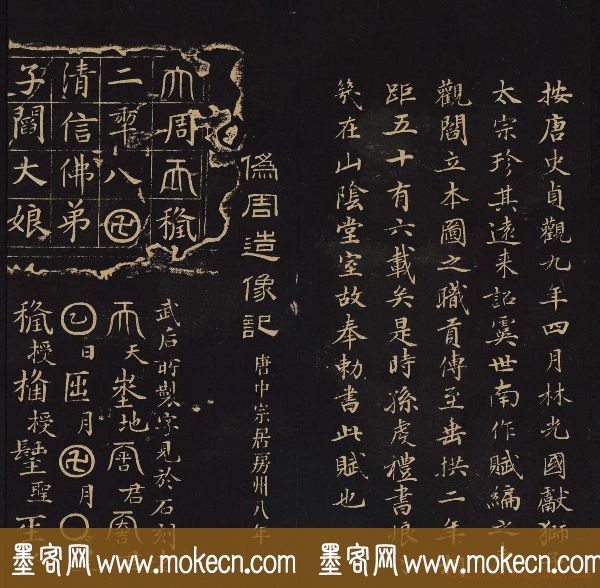 按唐史貞觀九年四月林光國獻獅
太宗珍其遠來詔虞世南作賦編之
觀閻立本圖之職貢傳至垂拱二年
距五十有六載矣是時孫虔禮書
在山陰堂室故奉勅書此賦也
偽周造像記
唐中宗居房州八年
大周𠀑𥠢
二𠡦八卍
清信佛弟
子閻大娘
武后所製字見於石刻
𠀑天埊地君
日月卍月
𥠢授授聖
墨客网 www.mokecn.com 墨客网 www.mokecn.com